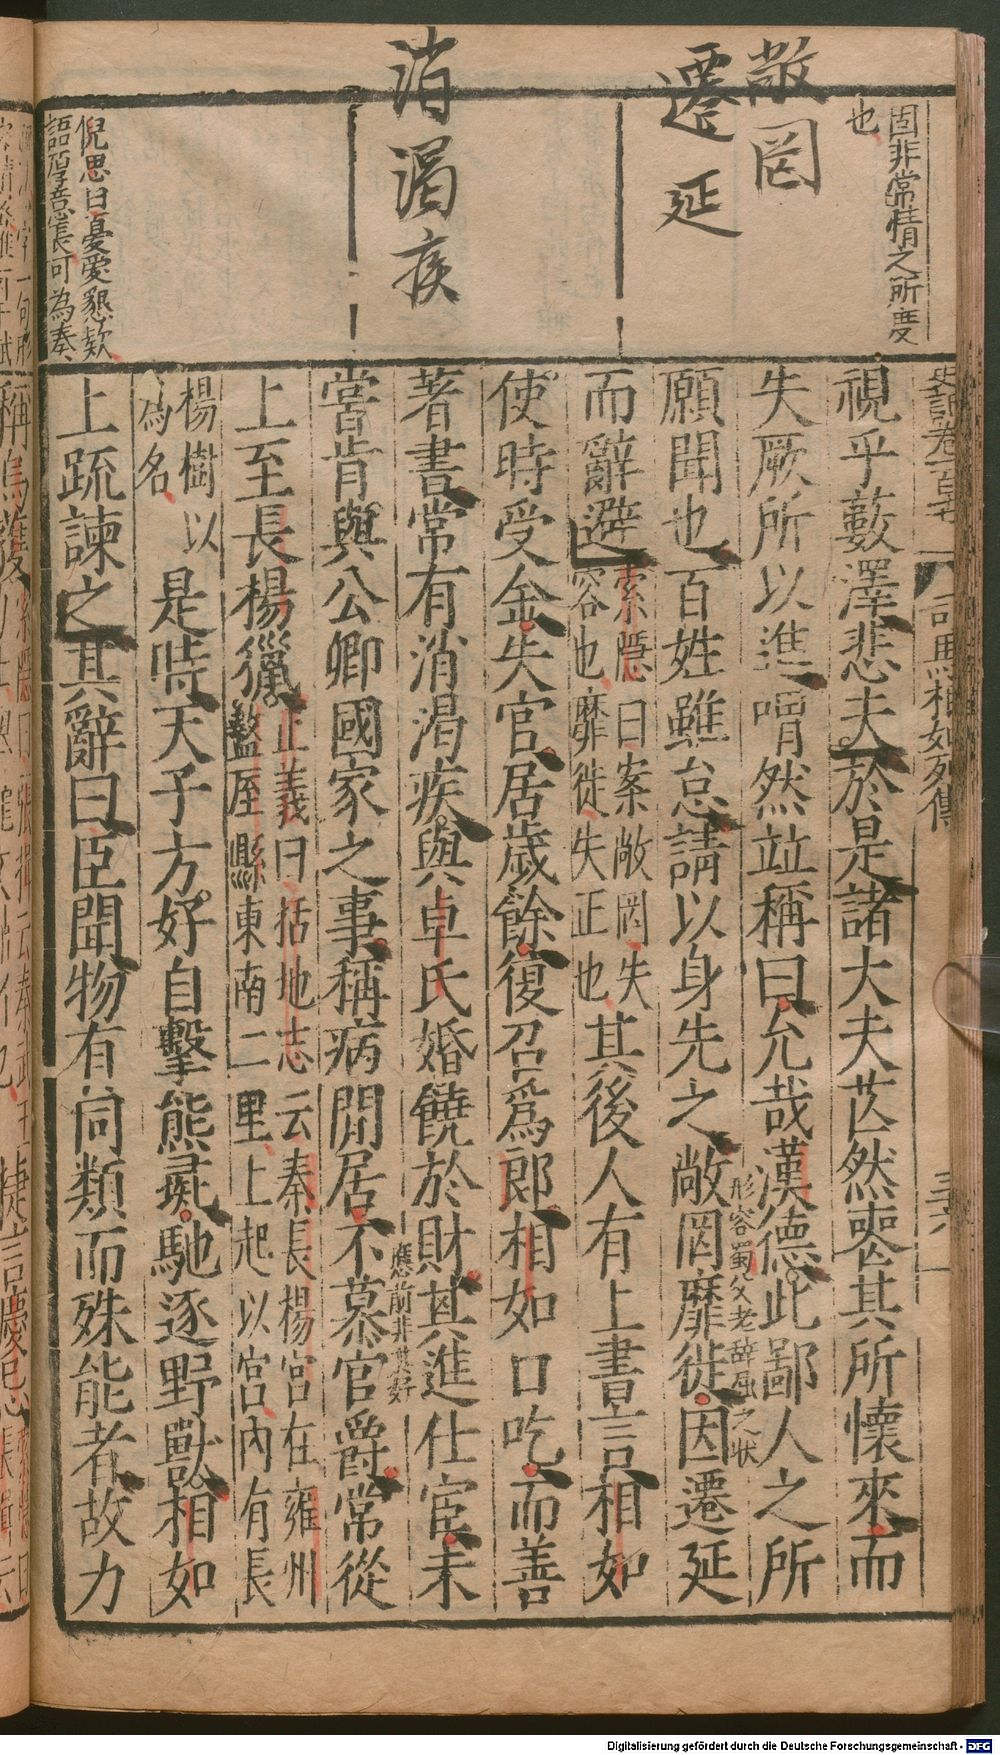 固非常情之所度
也
敞罔
遷延
消渴疾
倪思曰憂愛懇欵
語厚意長可為奏
史記卷一百十七
司馬相如列傳
三十六
視乎藪澤悲夫於是諸大夫芒然喪其所懷來而
失厥所以進喟然竝稱曰允哉漢德此鄙人之所
願聞也百姓雖怠請以身先之敞罔靡徙因遷延
形容蜀父老辭屈之状
而辭避
索隱曰案敞罔失
容也靡徙失正也
其後人有上書言相如
使時受金失官居歲餘復召爲郎相如口吃而善
著書常有消渴疾與卓氏婚饒於財其進仕宦未
應前非其好
嘗肯與公卿國家之事稱病閒居不慕官爵常從
上至長楊獵
正義曰括地志云秦長楊宮在雍州
盩厔縣東南二里上起以宮內有長
楊樹以
為名
是時天子方好自擊熊彘馳逐野獸相如
上疏諫之其辭曰臣聞物有同類而殊能者故力
Digitalisierung gefördert durch die Deutsche Forschungsgemeinschaft - DFG